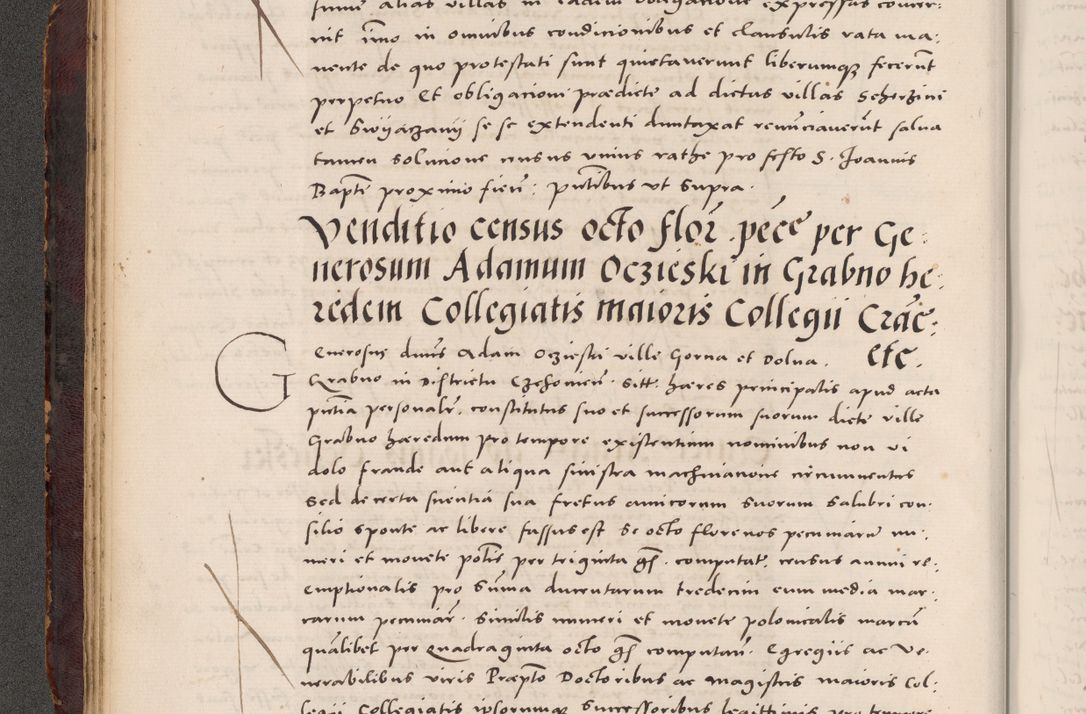 summ alias villas in radio obligatione expressas conver:
nit imo in omnibus condicionibus et clausulis rata ma:
nente de quo protestati sunt quietaverunt liberumqз fecerūt
perpetuo Et obligacioni prædicte ad dictas villas
et se se extendenti duntaxat renūciaverūt salva
tamen solucione census unius rathe pro festo S. Joannis
Bapte proximo fieñ: pntibus ut supra.
Venditio census octo flor̃ . pece per Ge:
nerosum Adamum Oczieski in Grabno he:
redem Collegiatis maioris Collegii Crac:
etc.
Generosus dnūs Adam Oczieski ville Gorna et Dolna.
Grabno in Districtu Czchoviens. sitt. hæres principalis apud acta
pntia personalr. constitutus suo et successorum suorum dicte ville
Grabno hæredum pro tempore existentium nominibus non vi
dolo fraude aut aliqua sinistra machinacione circumventus
Sed de certa scientia sua fretus amicorum suorum salubri con:
silio sponte ac libere fassus est se octo florenos pecuniarū nu:
meri et monete polcis per triginta gs̃. computat. census annui re:
emptionalis pro summa ducentarum tredecim cum media mar:
carum pecuniar̃. similis numeri et monete polonicalis marcā
quālibet per quadraginta octo gs̃ computañ. Egregiis ac Ve:
nerabilibus viris Præpto Doctoribus ac magistris maioris Col:
legii Collegiatis ipsorumqз successoribus legittimis pro tempore